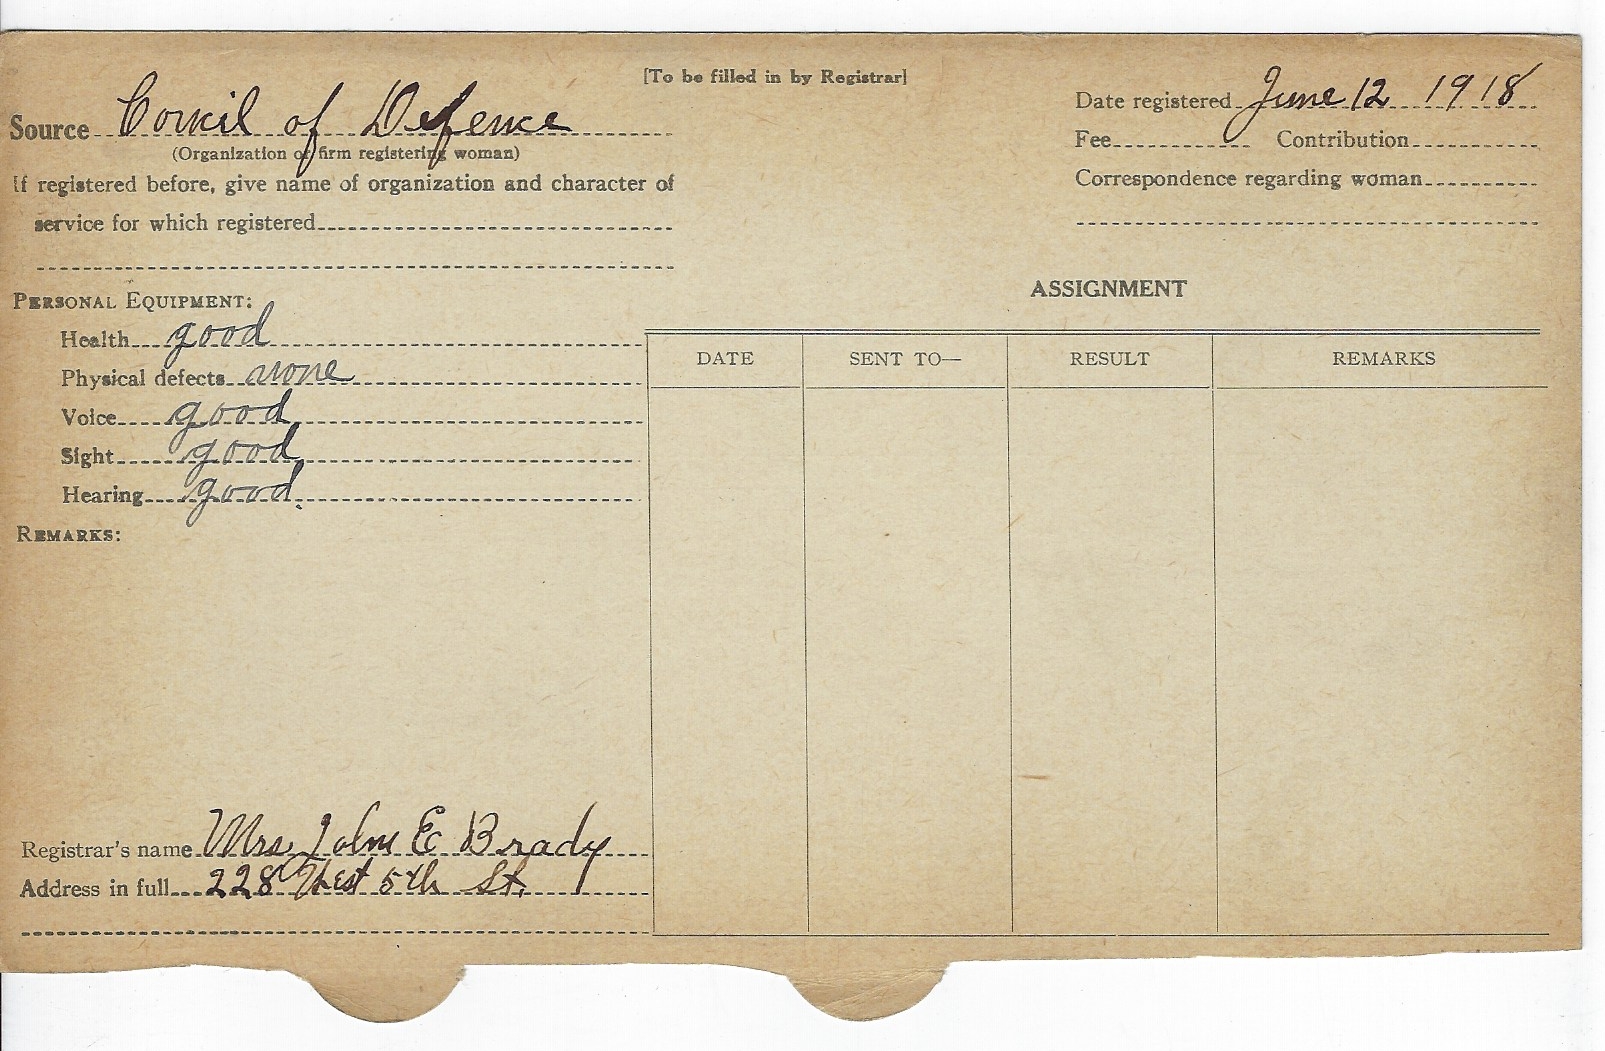 [To be filled in by Registrar]
Source Council of Defence
(Organization or firm registering woman)
If registered before, give name of organization and character of
service for which registered
Date registered June 12 1918
Fee Contribution
Correspondence regarding woman
PERSONAL EQUIPMENT:
Health good
Physical defects none
Voice good
Sight good
Hearing good.
REMARKS:
ASSIGNMENT
DATE SENT TO— RESULT REMARKS
Registrar's name Mrs. John E Brady
Address in full 228 West 5th St.